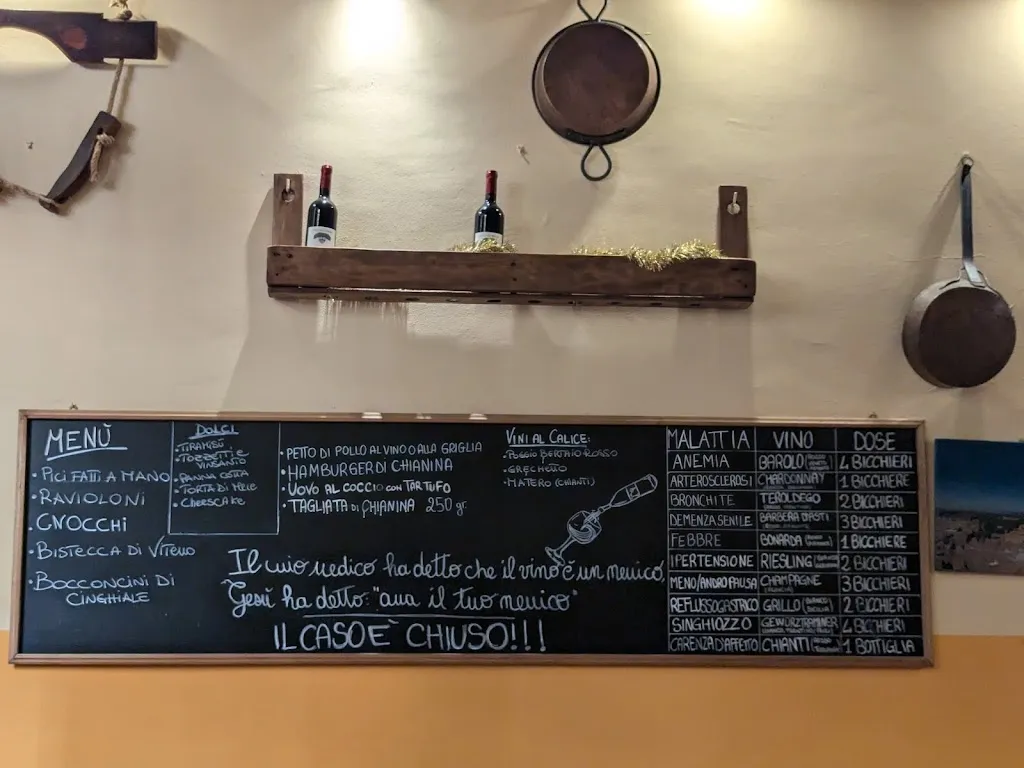 MENÙ
• PICI FATTI A MANO
• RAVIOLONI
• GNOCCHI
• BISTECCA DI VITELLO
• BOCCONCINI DI
CINGHIALE
DOLCI
• TIRAMISÙ
• TOZZETTI E
VINSANTO
• PANNA COTTA
• TORTA DI MELE
• CHEESCAKE
• PETTO DI POLLO AL VINO O ALLA GRIGLIA
• HAMBURGER DI CHIANINA
• UOVO AL COCCIO CON TARTUFO
• TAGLIATA DI CHIANINA 250 gr.
VINI AL CALICE:
• POGGIO BERTAIO ROSSO
• GRECHETTO
• MATERO (CHIANTI)
Il mio medico ha detto che il vino è un nemico,
Gesù ha detto: "ama il tuo nemico"
IL CASO È CHIUSO!!!
MALATTIA VINO DOSE
ANEMIA BAROLO 4 BICCHIERI
ARTEROSCLEROSI CHARDONNAY 1 BICCHIERE
BRONCHITE TEROLDEGO 2 BICCHIERI
DEMENZA SENILE BARBERA D'ASTI 3 BICCHIERI
FEBBRE BONARDA 1 BICCHIERE
IPERTENSIONE RIESLING 2 BICCHIERI
MENO/ANDROPAUSA CHAMPAGNE 3 BICCHIERI
REFLUSSO GASTRICO GRILLO 2 BICCHIERI
SINGHIOZZO GEWÜRZTRAMINER 4 BICCHIERI
CARENZA D'AFFETTO CHIANTI 1 BOTTIGLIA